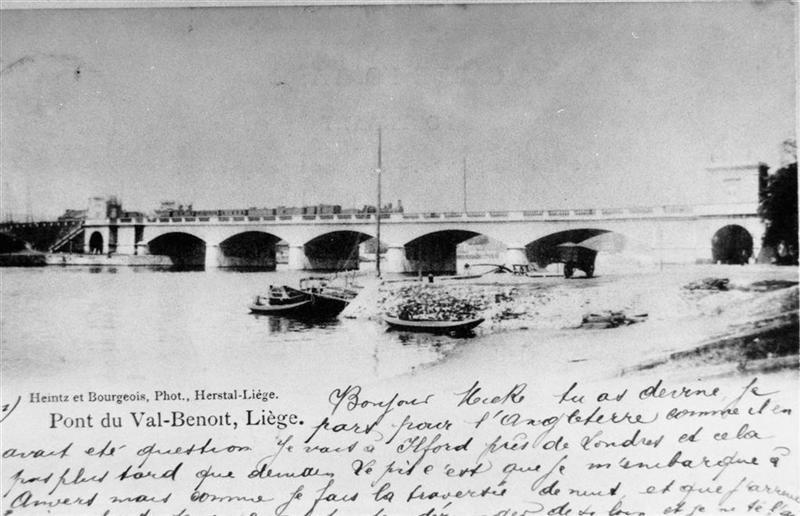 Heintz et Bourgeois, Phot., Herstal-Liége.
Pont du Val-Benoit, Liége.
Bonjour Mieke tu as deviné, je
pars pour l'Angleterre comme il en
avait eté question Je vais à Ilford près de Londres et cela
pas plus tard que demain Le pis c'est que je m'embarque à
Anvers mais comme je fais la traversée de nuit, et que j'arrive